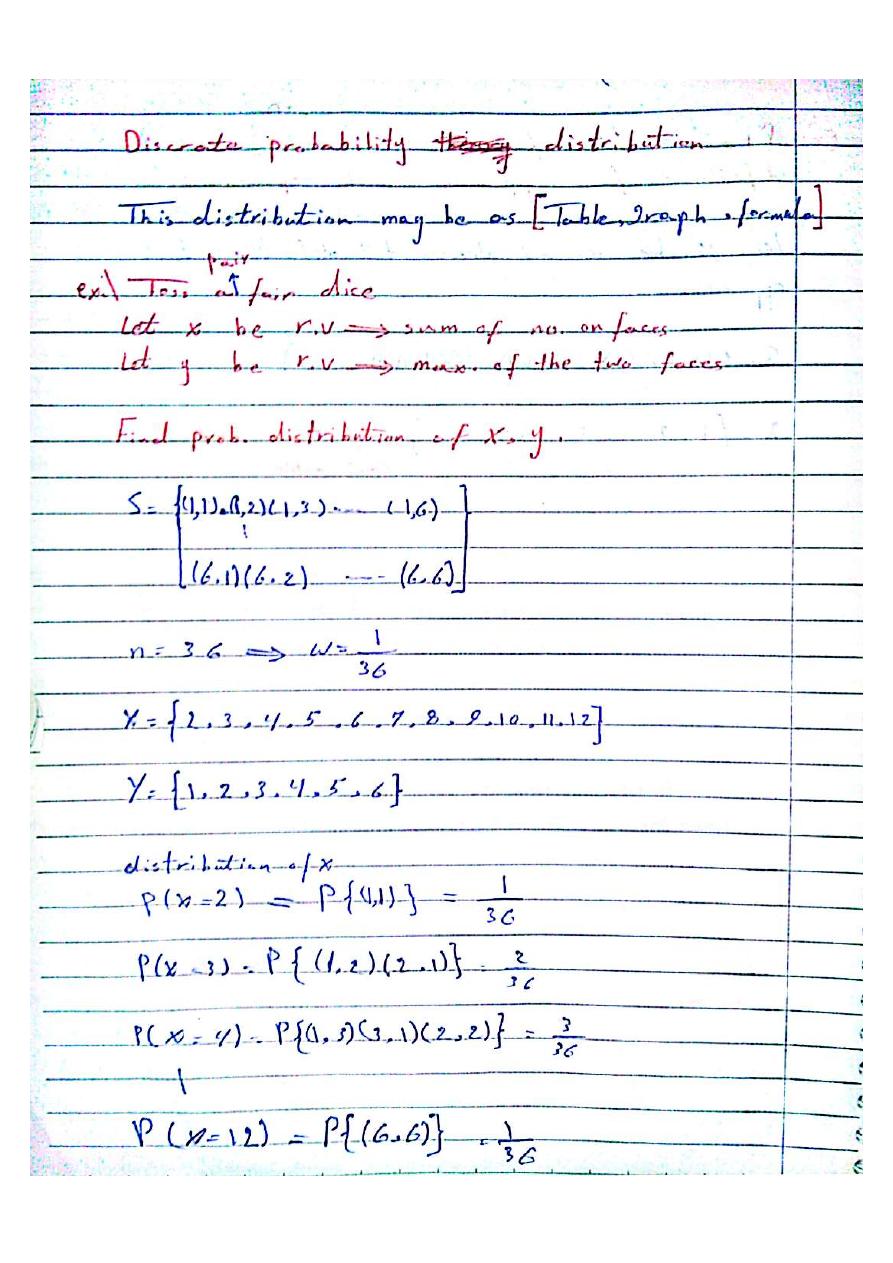 Discrete probability theory distribution
This distribution may be as [Table, graph, formula]
pair
ex:\ Toss a fair dice
Let x be r.v ⟹ sum of no. on faces
Let y be r.v ⟹ max. of the two faces
Find prob. distribution of x, y.
S = {(1,1),(1,2)(1,3) ---- (1,6)
(6,1)(6,2) ---- (6,6)}
n = 36 ⟹ w = 1/36
X = {2, 3, 4, 5, 6, 7, 8, 9, 10, 11, 12}
Y = {1, 2, 3, 4, 5, 6}
distribution of x
P(x=2) = P{(1,1)} = 1/36
P(x=3) = P{(1,2)(2,1)} = 2/36
P(x=4) = P{(1,3)(3,1)(2,2)} = 3/36
P(x=12) = P{(6,6)} = 1/36